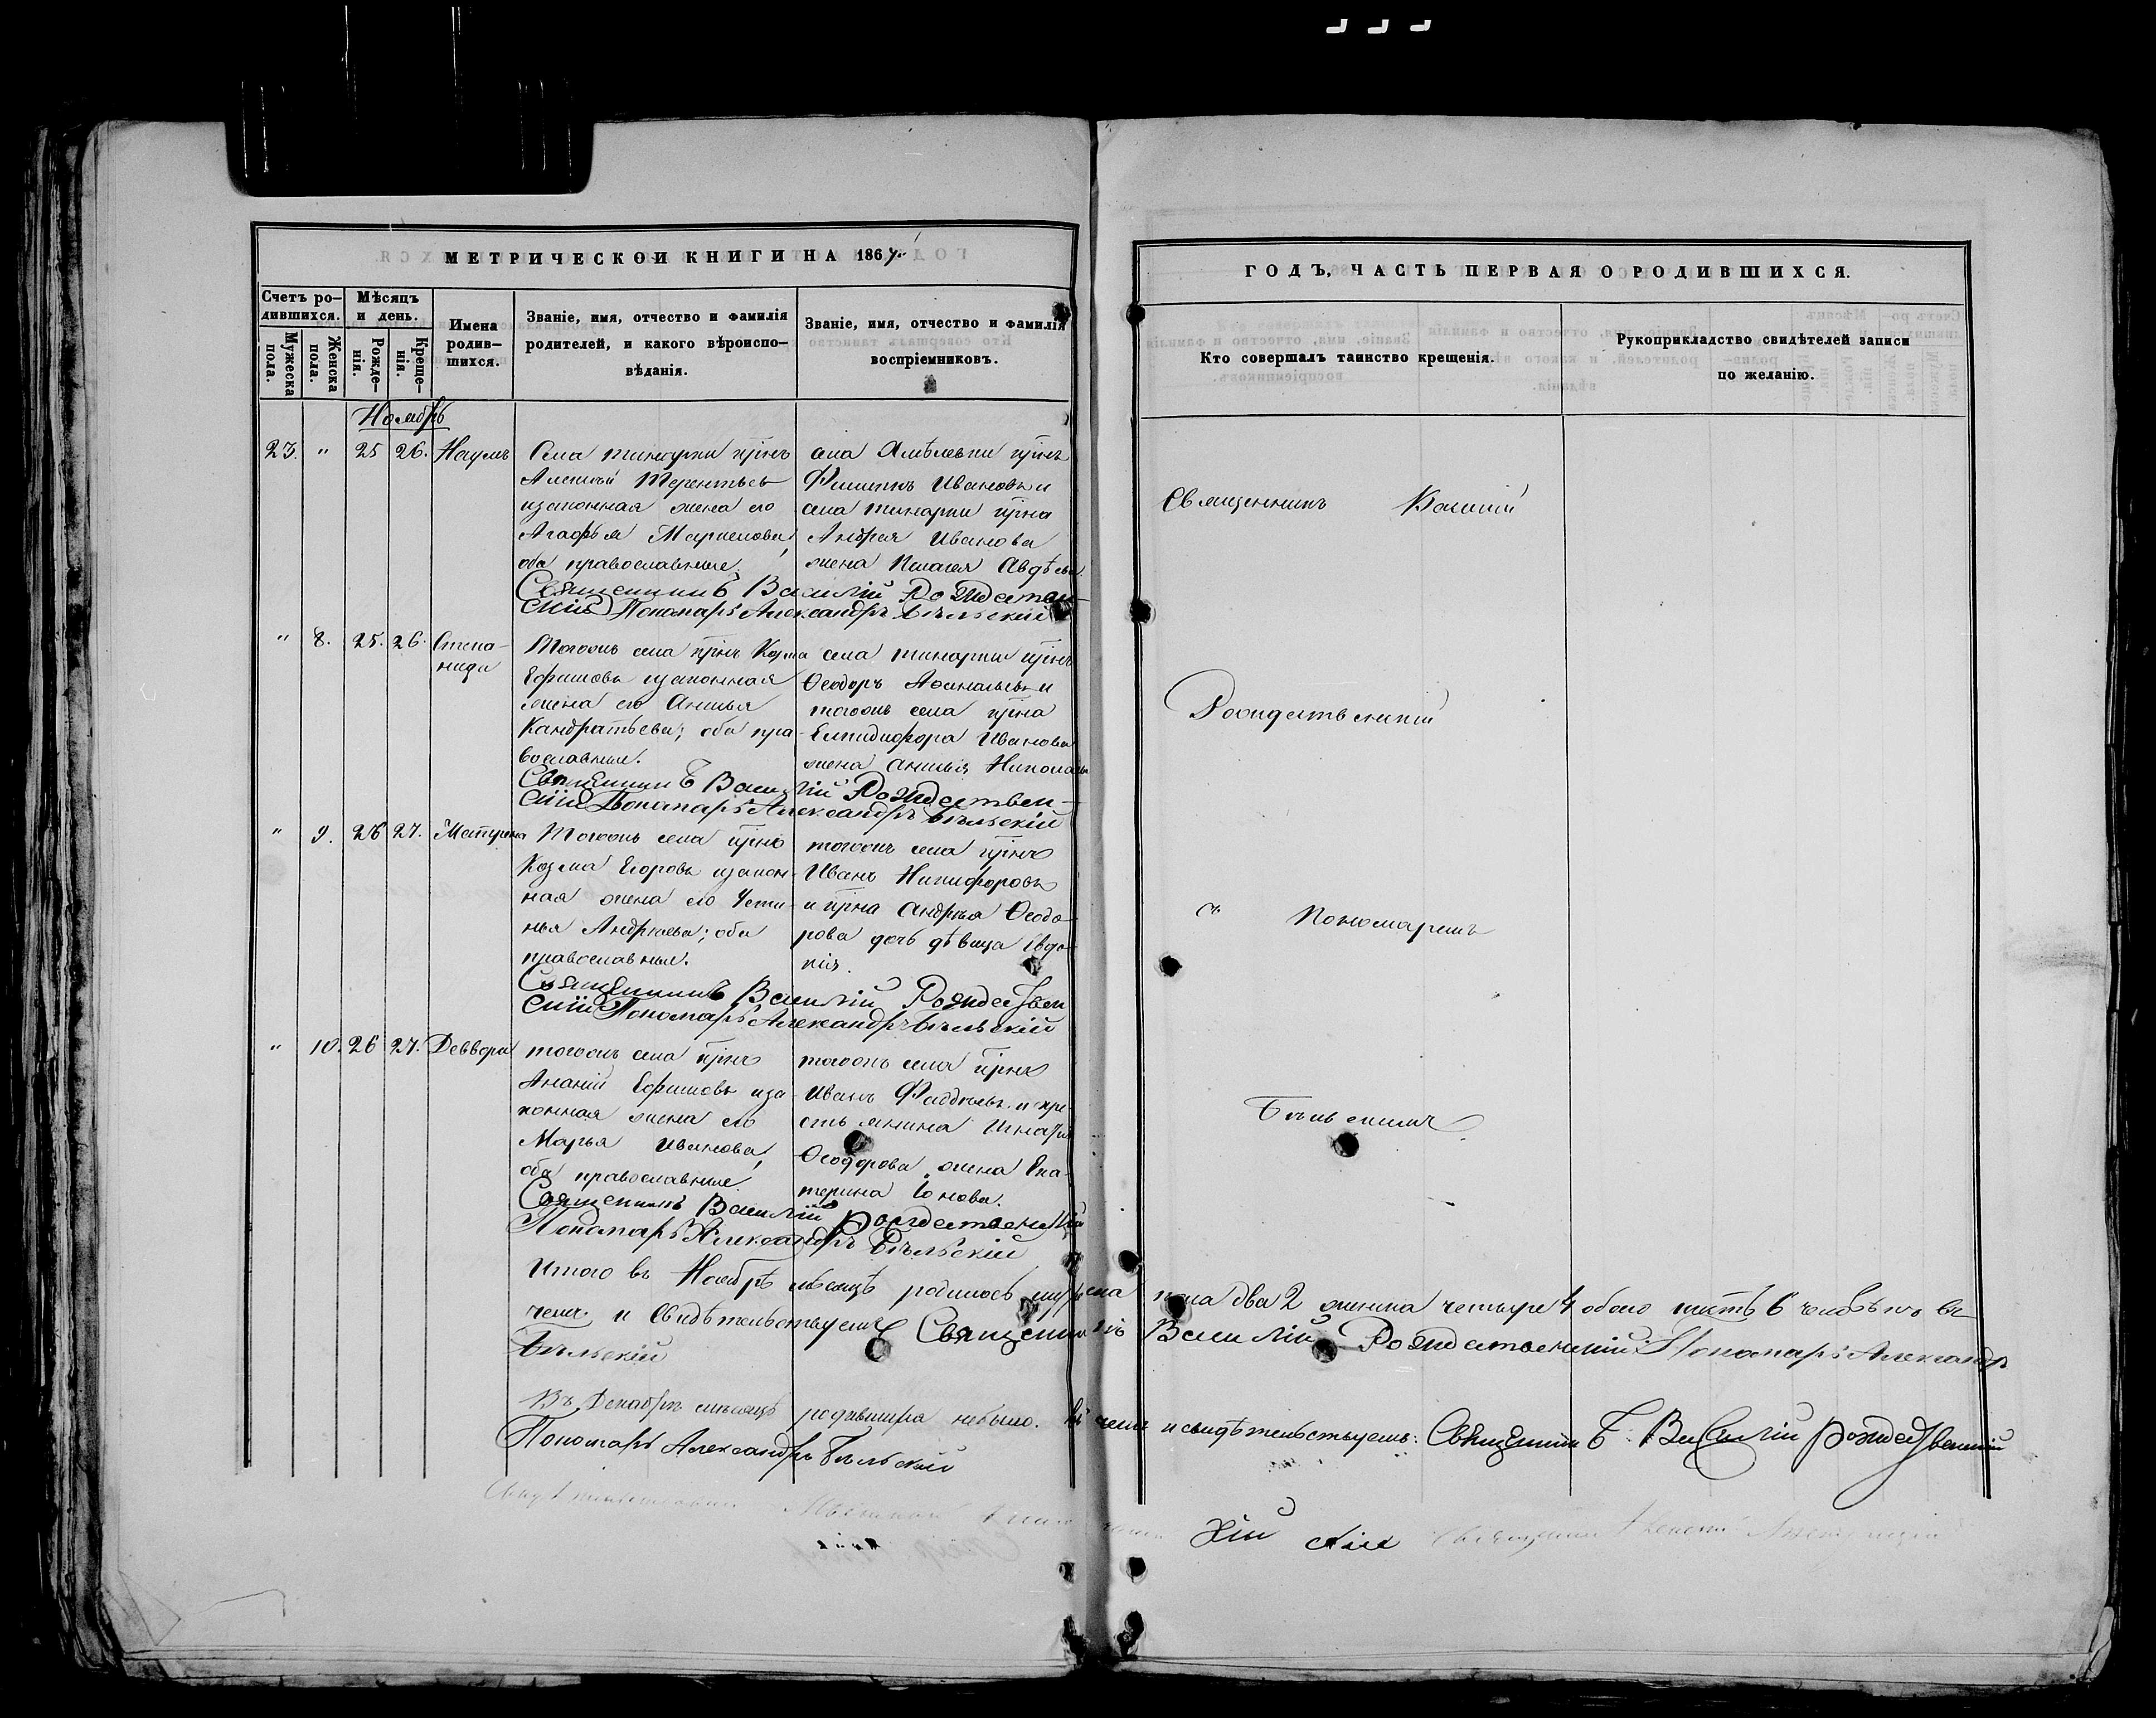 МЕТРИЧЕСКОЙ КНИГИ НА 1867.
ГОДЪ, ЧАСТЬ ПЕРВАЯ О РОДИВШИХСЯ.
Счетъ ро-
дившихся.
Мужеска
пола.
Женска
пола.
Мѣсяцъ
и день.
Рожде-
нія.
Креще-
нія.
Имена
родив-
шихся.
Званіе, имя, отчество и фамилія
родителей, и какого вѣроиспо-
вѣданія.
Званіе, имя, отчество и фамилія
воспріемниковъ.
Кто совершалъ таинство крещенія.
Рукоприкладство свидѣтелей записи
по желанію.
Ноябрь
23. " 25 26. Наумъ
Села
Алексѣй Терентьевъ
изаконная жена его
Агафья
оба православные.
села
Филиппъ Ивановъ и
села
Андрея Иванова
жена Пелагея Авдѣева.
Священникъ Василій Рождествен-
скій Пономарь Александръ Бѣльскій
" 8. 25. 26. Степа-
нида
Тогожъ села Козма
Ефимовъ изаконная
жена его Анисья
Кандратьева; оба пра-
вославные.
села
Ѳеодоръ Афанасьевъ и
тогожъ села
Елпидифора Иванова
жена Анисья
Священникъ Василій Рождествен-
скій Пономарь Александръ Бѣльскій
" 9. 26 27. Матрена
Тогожъ села
Козма Егоровъ изакон-
ная жена его Усти-
нья Андреева; оба
православные.
тогожъ села
Иванъ Никифоровъ
и Андрея Ѳеодо-
рова дочь дѣвица Евдо-
кія.
Священникъ Василій Рождествен
скій Пономарь Александръ Бѣльскій
" 10. 26 27. Деввора
тогожъ села
Ананій Ефимовъ иза-
конная жена его
Марья Иванова,
оба православные.
тогожъ села
Иванъ Фаддѣевъ и кре-
стьянина
Ѳеодорова жена Ека-
терина Іонова.
Священникъ Василій Рождественскій
Пономарь Александръ Бѣльскій
Священникъ Василій
Рождественскій
съ Пономаремъ
Бѣльскимъ
Итого въ Ноябрѣ мѣсяцѣ родилось мужеска пола два 2 женска четыре 4 обоего 6 человѣкъ въ
чемъ и свидѣтельствуемъ Священникъ Василій Рождественскій Пономарь Александръ
Бѣльскій
Въ Декабрѣ мѣсяцѣ родившихся небыло. въ чемъ и свидѣтельствуемъ: Священникъ Василій Рождественскій
Пономарь Александръ Бѣльскій